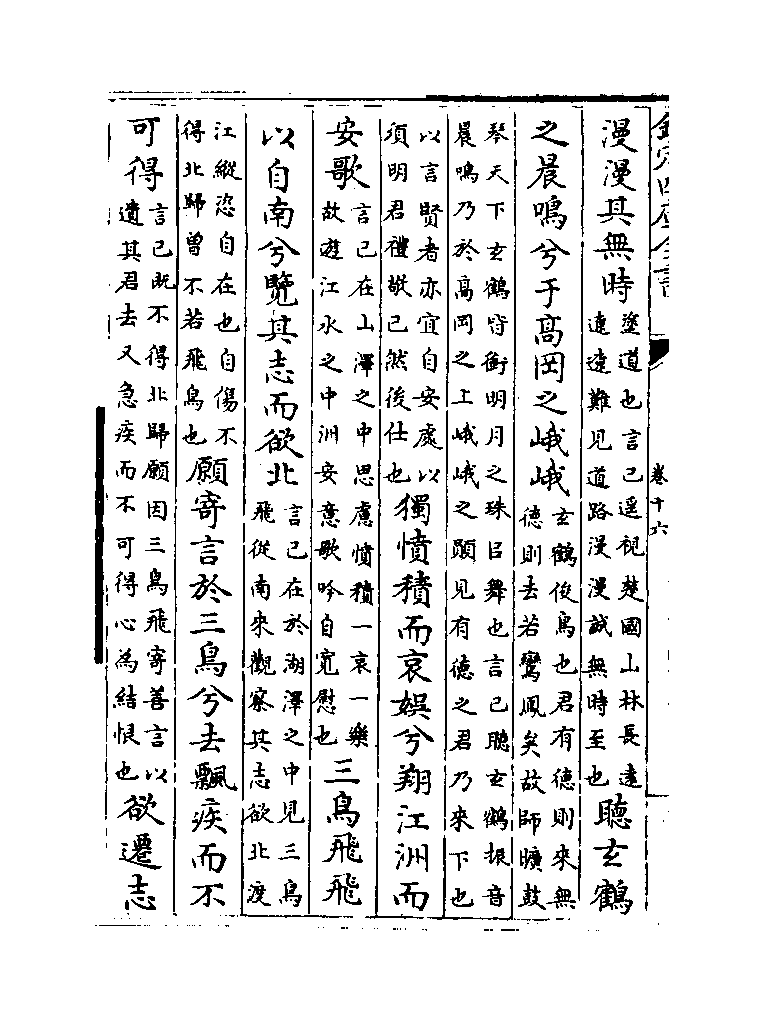 欽定四庫全書
卷十六
漫漫其無時塗道也言己遥視楚國山林長遠遼遠難見道路漫漫誠無時至也聽玄鶴
之晨鳴兮于髙岡之峨峨玄鶴俊鳥也君有德則來無德則去若鸞鳳矣故師曠鼓
琴天下玄鶴皆銜明月之珠以舞也言己聽玄鶴振音晨鳴乃於髙岡之上峨峨之顚見有德之君乃來下也
以言賢者亦宜自安處以須明君禮敬己然後仕也獨憤積而哀娛兮翔江洲而
安歌言己在山澤之中思慮憤積一哀一樂故遊江水之中洲安意歌吟自寛慰也三鳥飛飛
以自南兮覽其志而欲北言己在於湖澤之中見三鳥飛從南來觀察其志欲北渡
江縱恣自在也自傷不得北歸曽不若飛鳥也願寄言於三鳥兮去飄疾而不
可得言己既不得北歸願因三鳥飛寄善言以遺其君去又急疾而不可得心為結恨也欲遷志